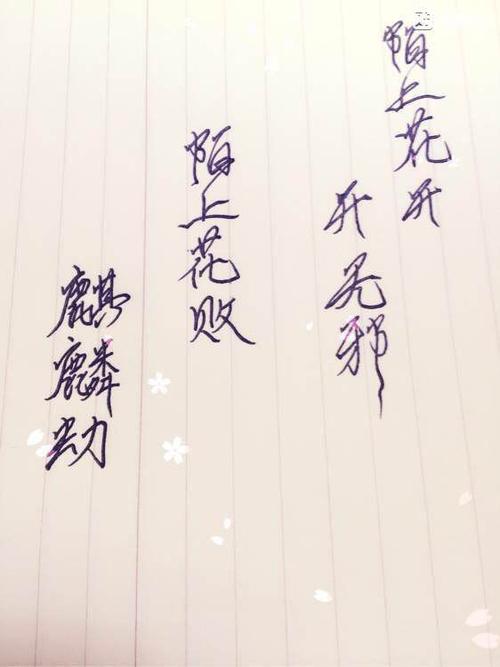 陌上花开
开吴邪
陌上花败
麒麟劫